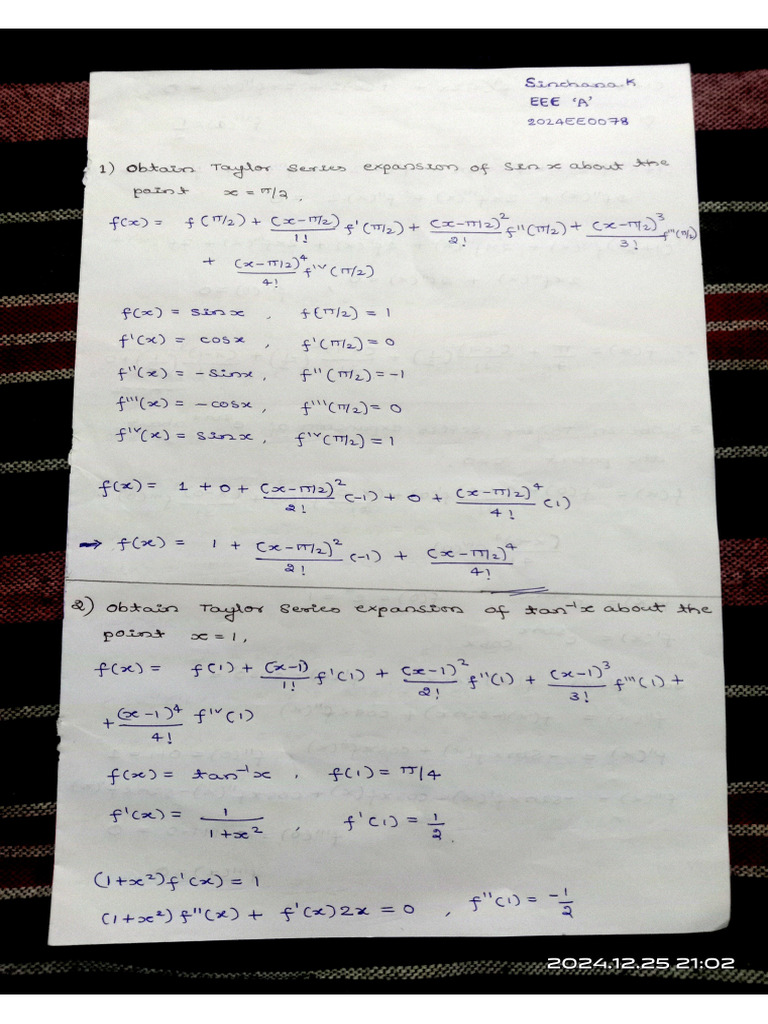 Sinchana.K
EEE 'A'
2024EE0078
1) Obtain Taylor Series expansion of sin x about the
point x = π/2.
f(x) = f(π/2) + (x-π/2)/1! f'(π/2) + (x-π/2)²/2! f''(π/2) + (x-π/2)³/3! f'''(π/2)
+ (x-π/2)⁴/4! fⁱᵛ(π/2)
f(x) = sinx , f(π/2) = 1
f'(x) = cosx , f'(π/2) = 0
f''(x) = -sinx, f''(π/2) = -1
f'''(x) = -cosx, f'''(π/2) = 0
fⁱᵛ(x) = sinx, fⁱᵛ(π/2) = 1
f(x) = 1 + 0 + (x-π/2)²/2! (-1) + 0 + (x-π/2)⁴/4! (1)
→ f(x) = 1 + (x-π/2)²/2! (-1) + (x-π/2)⁴/4!
2) Obtain Taylor Series expansion of tan⁻¹x about the
point x = 1,
f(x) = f(1) + (x-1)/1! f'(1) + (x-1)²/2! f''(1) + (x-1)³/3! f'''(1) +
+ (x-1)⁴/4! fⁱᵛ(1)
f(x) = tan⁻¹x , f(1) = π/4
f'(x) = 1/1+x² , f'(1) = 1/2.
(1+x²)f'(x) = 1
(1+x²) f''(x) + f'(x)2x = 0 , f''(1) = -1/2
2024.12.25 21:02